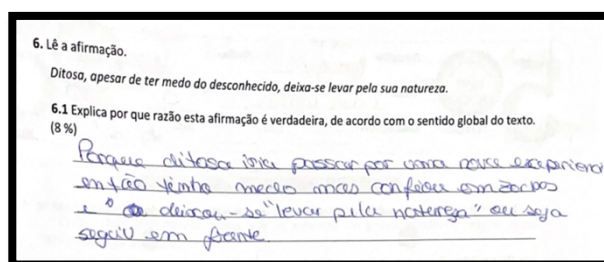 6. Lê a afirmação.
Ditosa, apesar de ter medo do desconhecido, deixa-se levar pela sua natureza.
6.1 Explica por que razão esta afirmação é verdadeira, de acordo com o sentido global do texto.
(8 %)
Porque ditosa iria passar por uma nova experiencia
então tinha medo mas confiou em zorbas
e deixou-se "levar pela natureza" ou seja
seguiu em frente